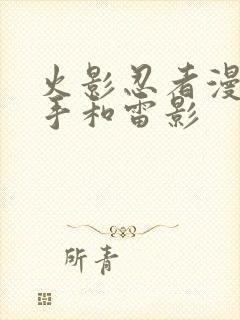 火影忍者漫
手和雷影
所青